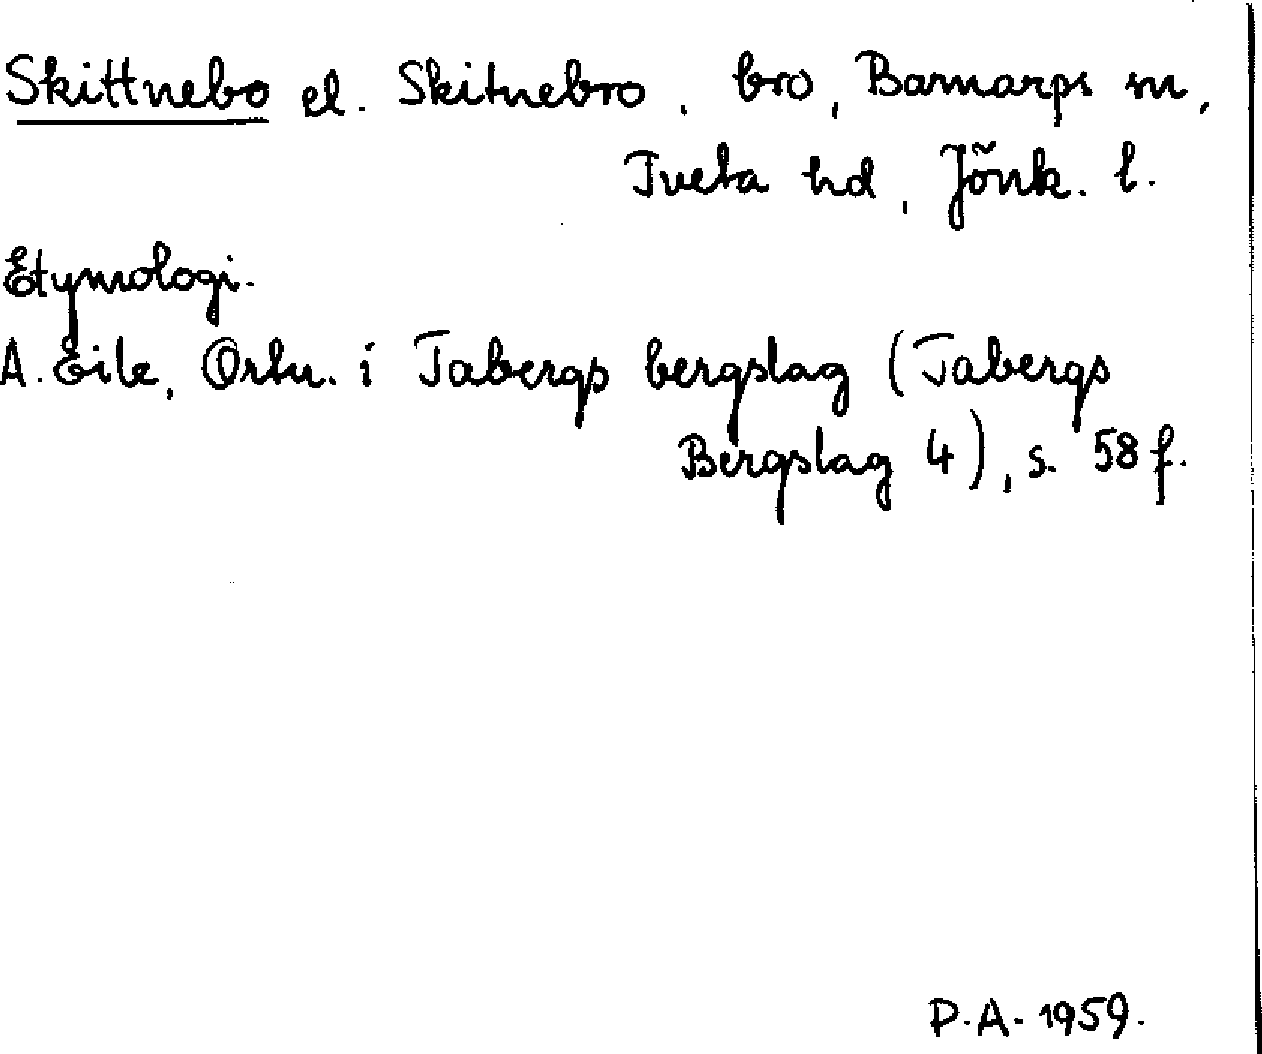 Skittnebo el. Skitnebro, bro, Barnarps sn,
Tveta hd, Jönk. l.
Etymologi.
A. Eile, Ortn. i Tabergs bergslag (Tabergs
Bergslag 4), s. 58 f.
P.A. 1959.